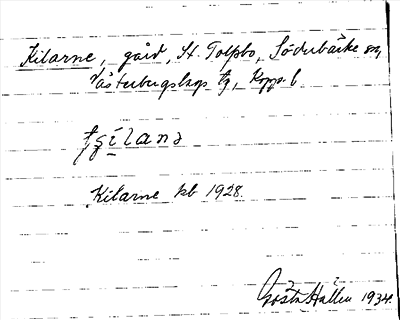 Kilarne, gård, St. Tolpbo, Söderbärke sn,
Västerbergslags fg, Kopp. l.
Kilarne kb 1928.
Gösta Hallén 1934.